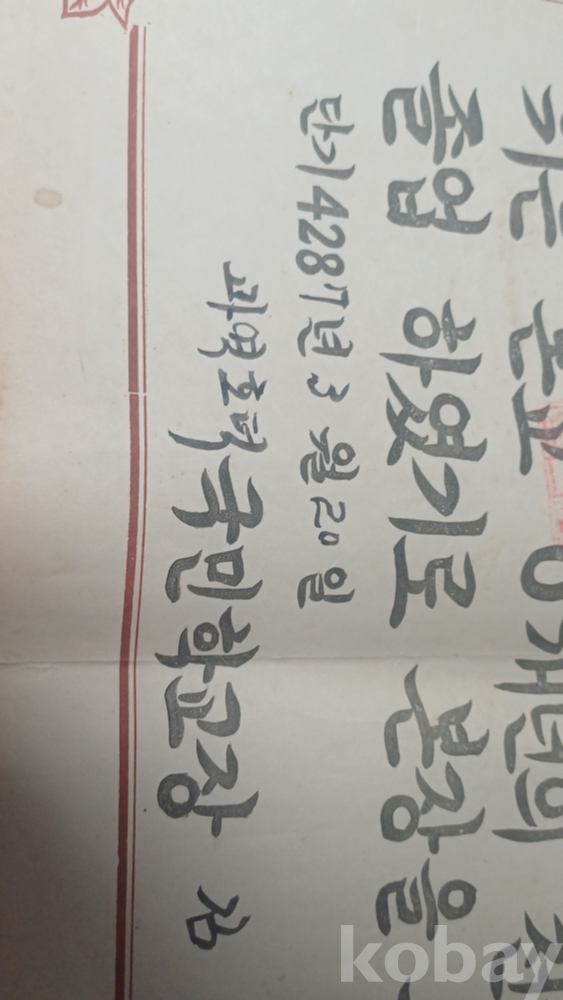 는 본교 6개년의
졸업 하였기로 본장을
단기 4287년 3월 20일
과역호덕국민학교장
kobay